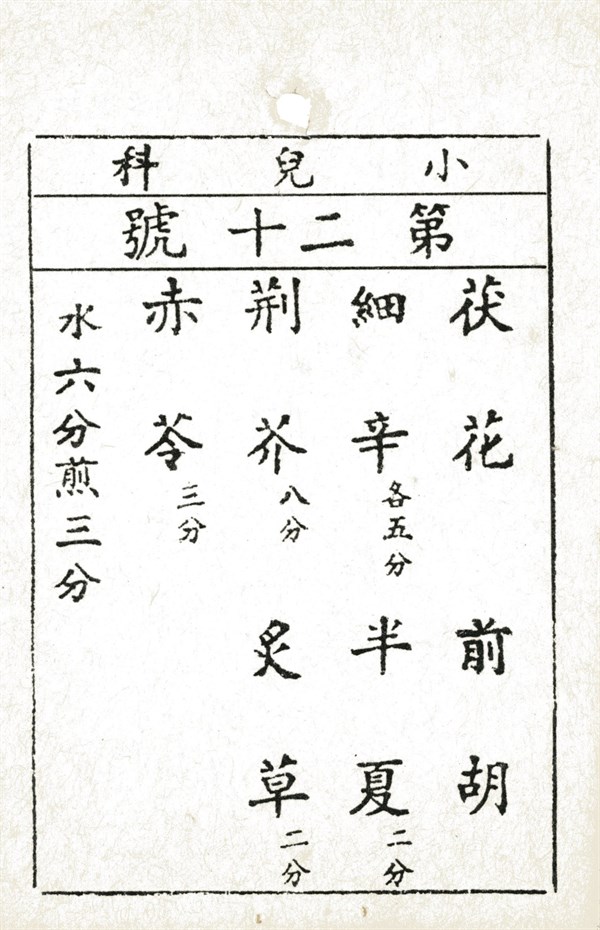 小兒科
第二十號
茯花　前胡
細辛各五分　半夏二分
荆芥八分　炙草二分
赤苓三分
水六分煎三分